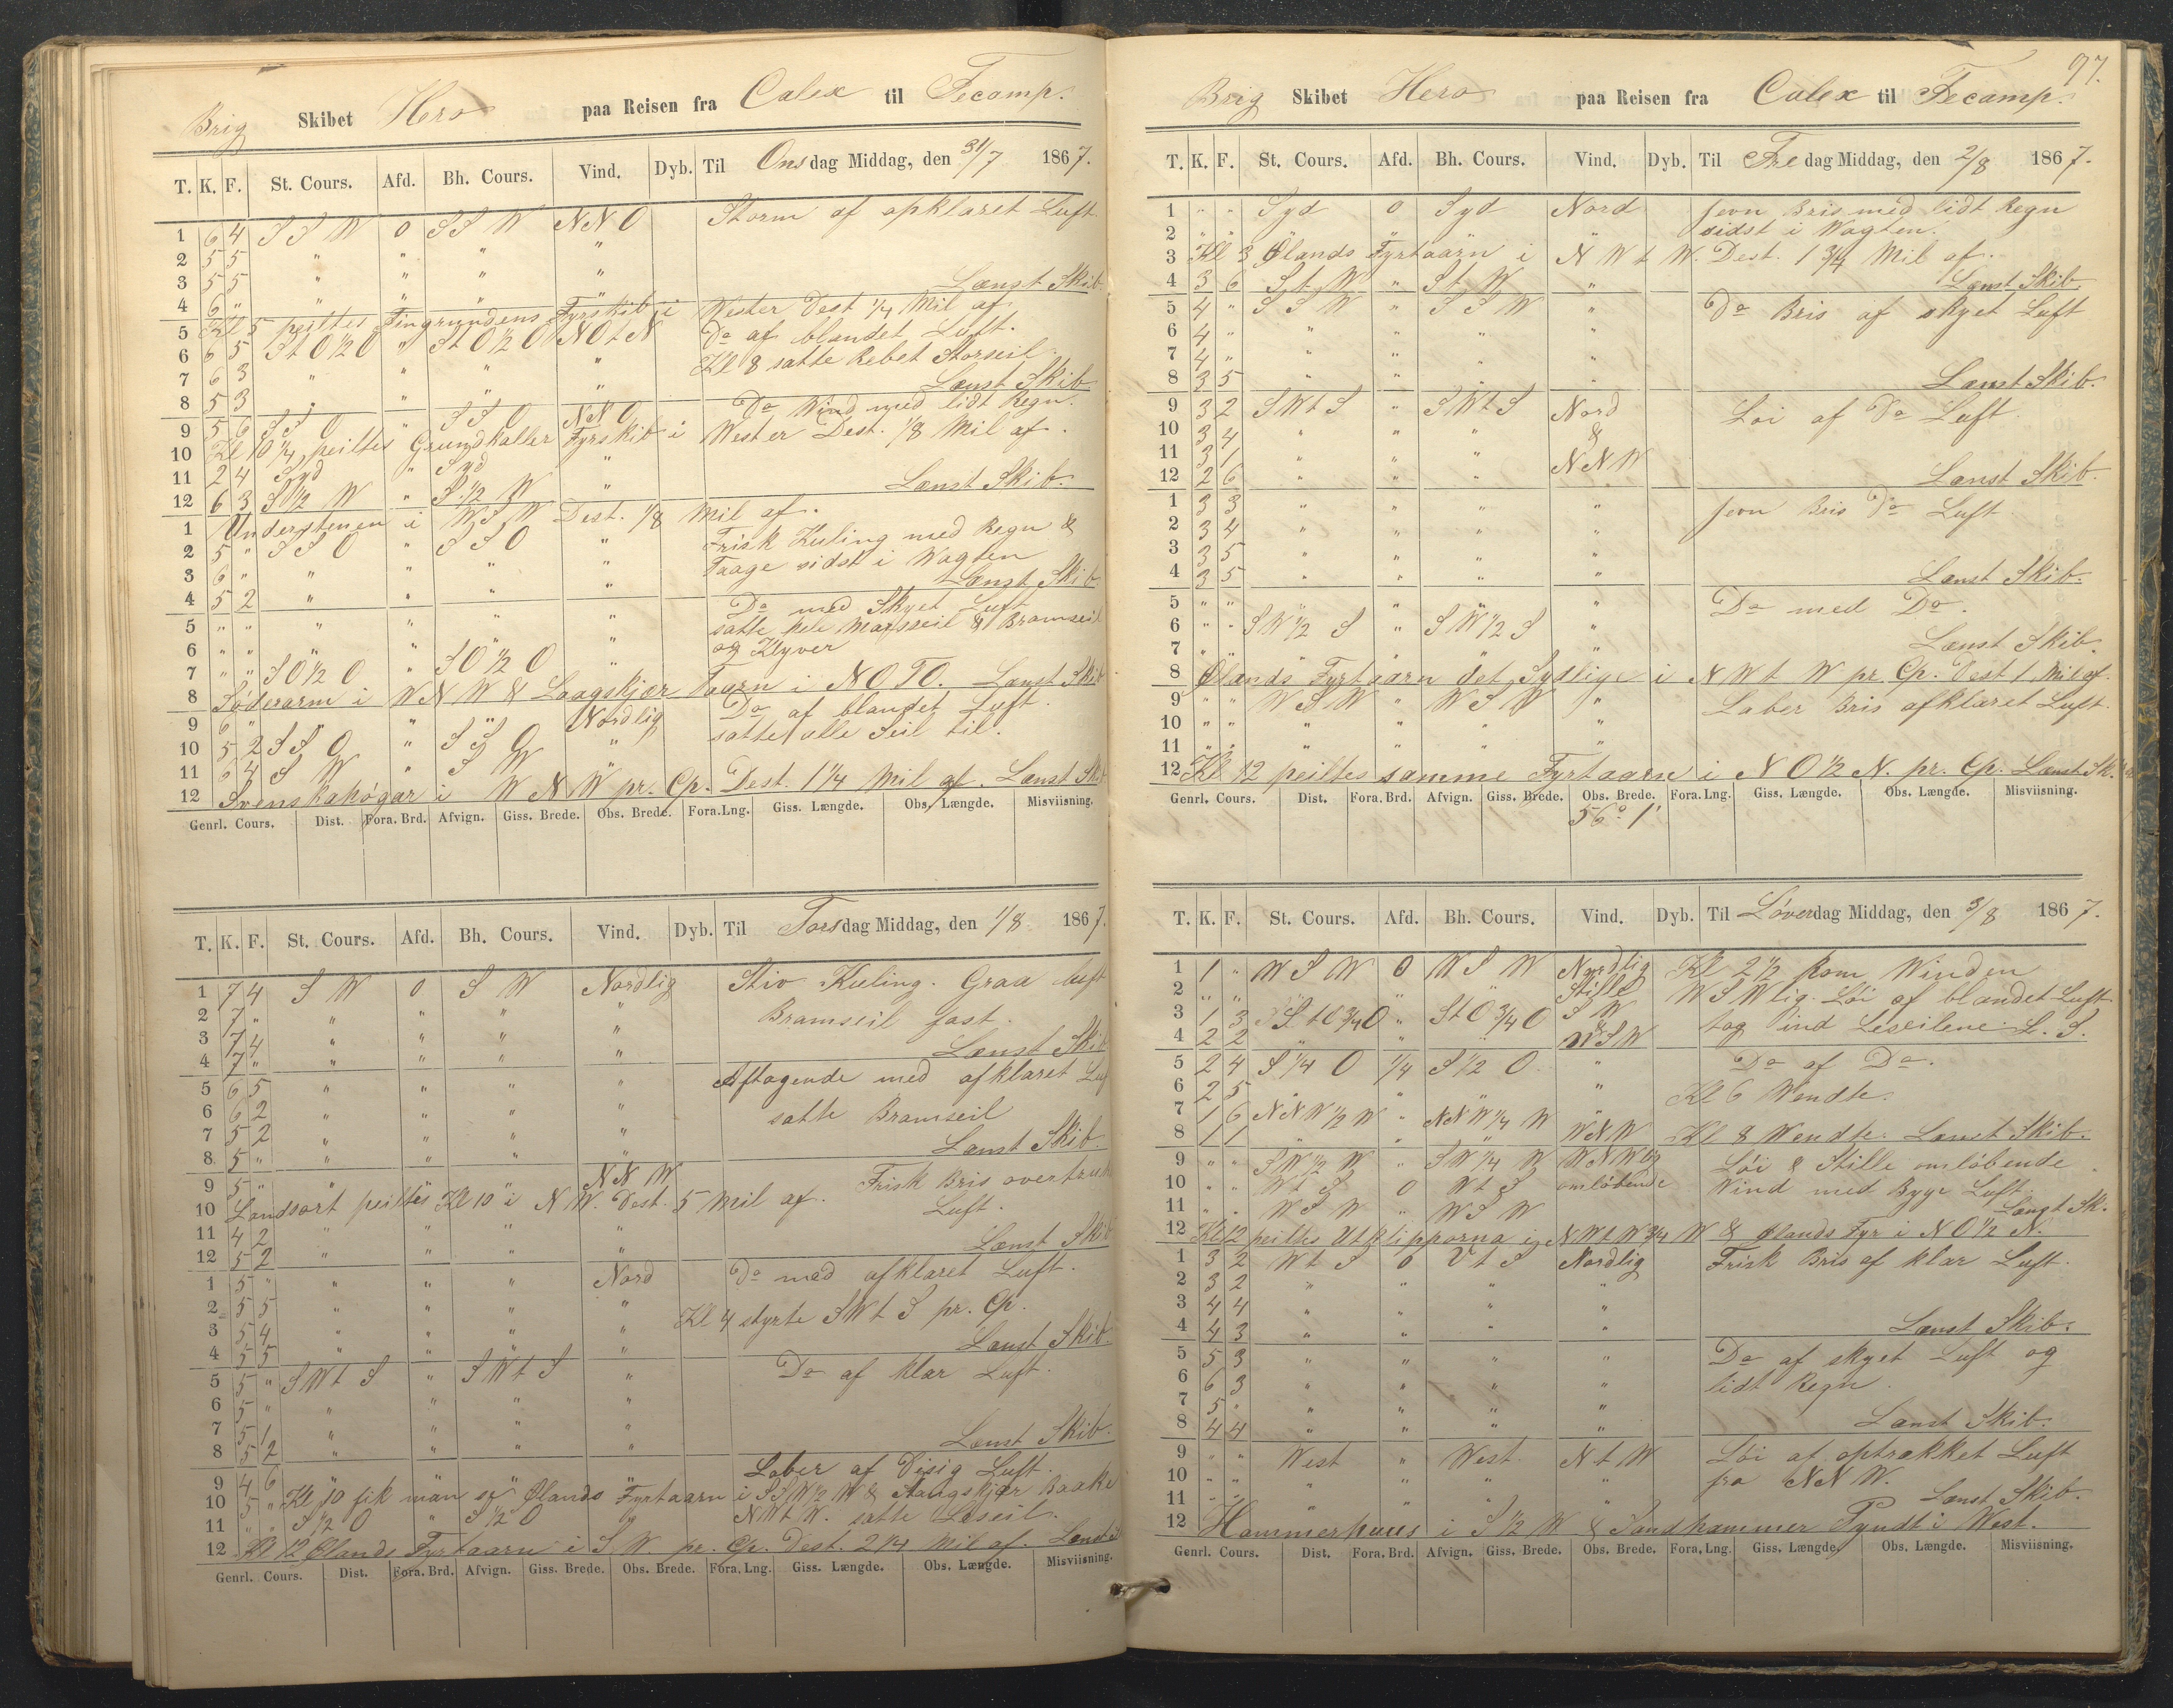 Brig Skibet Hero paa Reisen fra Calex til Fecamp.
T. K. F. St. Cours. Afd. Bh. Cours. Vind. Dyb. Til Onsdag Middag, den 31/7 1867.
1 6 4 S S W 0 S S W N N O Storm af opklaret Luft
2 5 5 " " " "
3 5 5 " " " " Lænst Skib
4 6 " " " " "
5 Kl 5 peiltes Fingrundens Fyrskib i Wester Dest 1/4 Mil af
6 6 5 S t O 1/2 O " S t O 1/2 O N O t N Do af blandet Luft.
7 6 3 " " " " Kl 8 satte Rebet Storseil
8 5 3 " " " " Lænst Skib
9 5 6 S S O " S S O N N O Do Wind med lidt Regn.
10 Kl 10 1/4 peiltes Grundkaller Fyrskib i Wester Dest. 1/8 Mil af.
11 2 4 Syd " Syd "
12 6 3 S 1/2 W " S 1/2 W " Lænst Skib.
1 Understenen i W S W Dest. 1/8 Mil af.
2 5 " S S O " S S O " Frisk Kuling med Regn &
3 6 " " " " " Taage sidst i Wagten
4 5 2 " " " " Lænst Skib
5 " " " " " " Do med Skyet Luft
6 " " " " " " satte hele Mærsseil & Bramseil
og Klyver
7 " " S O 1/2 O " S O 1/2 O "
8 Söderarm i W N W & Laagskjær Taarn i N O T O. Lænst Skib
9 6 " " " " Nordlig Do af blandet Luft.
10 5 2 S S O " S S O " satte alle Seil til.
11 6 4 S W " S W "
12 Svenskahögar i W N W pr. Cp. Dest. 1 1/4 Mil af. Lænst Skib
Genrl. Cours. Dist. Fora. Brd. Afvign. Giss. Brede. Obs. Brede. Fora. Lng. Giss. Længde. Obs. Længde. Misviisning.
T. K. F. St. Cours. Afd. Bh. Cours. Vind. Dyb. Til Torsdag Middag, den 1/8 1867.
1 7 4 S W 0 S W Nordlig Stiv Kuling. Graa luft
2 7 " " " " " Bramseil fast.
3 7 4 " " " " Lænst Skib
4 7 " " " " "
5 6 5 " " " " Aftagende med afklaret Luf
6 6 2 " " " " satte Bramseil
7 5 2 " " " " Lænst Skib
8 5 " " " "
9 5 " " " " N N W Frisk Bris overtruk
10 Landsort peiltes Kl 10 i N W. Dest. 5 Mil af. Luft.
11 4 2 " " " "
12 5 2 " " " " Lænst Skib
1 5 " " " " Nord Do med afklaret Luft.
2 5 5 " " " " Kl 4 styrte S W t S pr. Cp.
3 5 4 " " " " Lænst Skib.
4 5 5 " " " "
5 5 " S W t S " S W t S " Do af klar Luft.
6 5 " " " " "
7 5 1 " " " " Lænst Skib.
8 5 2 " " " "
9 4 6 " " " " Laber af Disig Luft.
10 5 " Kl 10 fik man se Ølands Fyrtaarn i S S W 1/2 W & Aangskjær Baake
11 " " S 1/2 O " S 1/2 O " N W t W. satte Læseil.
12 Kl 12 Ølands Fyrtaarn i S W. pr. Cp. Dest. 2 1/4 Mil af.
Genrl. Cours. Dist. Fora. Brd. Afvign. Giss. Brede. Obs. Brede. Fora. Lng. Giss. Længde. Obs. Længde. Misviisning.
97.
Brig Skibet Hero paa Reisen fra Calex til Fecamp.
T. K. F. St. Cours. Afd. Bh. Cours. Vind. Dyb. Til Fredag Middag, den 2/8 1867.
1 " " Syd 0 Syd Nord Jevn Bris med lidt Regn
2 " " " " " " sidst i Wagten.
3 Kl 3 Ølands Fyrtaarn i N W t W. Dest. 1 3/4 Mil af.
4 3 6 S t W " S t W " Lænst Skib
5 4 " S S W " S S W " Do Bris af skyet Luft
6 4 " " " " "
7 4 " " " " "
8 3 5 " " " " Lænst Skib.
9 3 2 S W t S " S W t S Nord Löi af Do Luft.
10 3 4 " " " &
11 3 1 " " " N N W
12 2 6 " " " Lænst Skib.
1 3 3 " " " " Jevn Bris Do Luft
2 3 4 " " " "
3 3 5 " " " "
4 3 5 " " " " Lænst Skib.
5 " " " " " Do med Do.
6 " " S W 1/2 S " S W 1/2 S "
7 " " " " " Lænst Skib.
8 Ølands Fyrtaarn det Sydlige i N W t W pr. Cp. Dest 1 Mil af.
9 " " W S W " W S W " Laber Bris afklaret Luft.
10 " " " " " "
11 " " " " " "
12 Kl 12 peiltes samme Fyrtaarn i N O 1/2 N. pr. Cp. Lænst Sk.
Genrl. Cours. Dist. Fora. Brd. Afvign. Giss. Brede. Obs. Brede. Fora. Lng. Giss. Længde. Obs. Længde. Misviisning.
56° 1'
T. K. F. St. Cours. Afd. Bh. Cours. Vind. Dyb. Til Löverdag Middag, den 3/8 1867.
1 1 " W S W 0 W S W Nordlig Kl 2 1/2 kom Winden
2 " " " " " Stille W S Wlig. Löi af blandet Luft
3 1 3 S t O 3/4 O " S t O 3/4 O S W tog ind Leseilene. L. S.
4 2 2 " " " & W S W
5 2 4 S 1/4 O 1/4 S 1/2 O " Do af Do.
6 2 5 " " " " Kl 6 Wendte.
7 1 6 N N W 1/2 W " N N W 1/4 W "
8 1 1 " " " W N W Kl 8 Wendte. Lænst Skib.
9 " " S W 1/2 W " S W 1/4 W W N W og Löi & Stille omlöbende
10 " " W t S 0 W t S omlöbende Wind med Byge Luft.
11 " " W S W " W S W Længt Sk.
12 Kl 12 peiltes Utklipporna i N W t W 3/4 W & Ølands Fyr i N O 1/2 N.
1 3 2 W t S 0 V t S Nordlig Frisk Bris af klar Luft.
2 3 2 " " " "
3 4 4 " " " "
4 4 3 " " " " Lænst Skib.
5 5 3 " " " " Do af skyet Luft og
6 6 3 " " " " lidt Regn.
7 5 " " " " "
8 4 4 " " " " Lænst Skib.
9 " " West " West N t W Löi af optrækket Luft
10 " " " " " " fra N N W.
11 " " " " " " Lænst Skib.
12 Hammerhuus i S 1/2 W & Sandhammer Pyndt i West.
Genrl. Cours. Dist. Fora. Brd. Afvign. Giss. Brede. Obs. Brede. Fora. Lng. Giss. Længde. Obs. Længde. Misviisning.